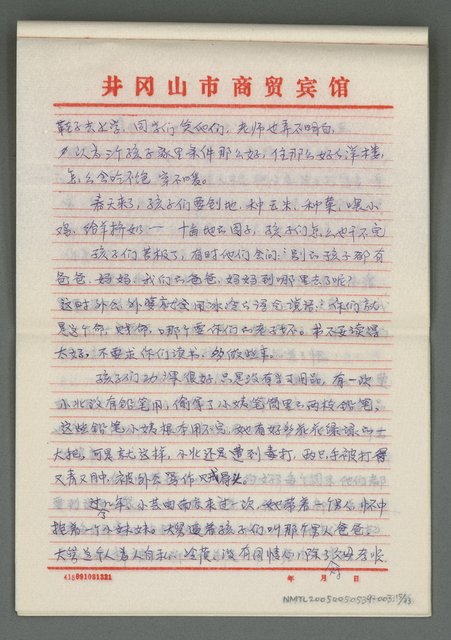 井冈山市商贸宾馆
鞋子去上学，同学们笑他们，老师也弄不明白，
认为这孩子家里条件那么好，住那么好的洋楼，
怎么会吃不饱，穿不暖。
春天来了，孩子们要刨地，种玉米，种菜，喂小
鸡，给羊挤奶——十亩地的园子，孩子们怎么也干不完
孩子们苦极了，有时他们会问：别的孩子都有
爸爸，妈妈，我们的爸爸，妈妈到哪里去了呢？
这时外公，外婆就会用冰冷的语言讲：你们就
是这个命，贱命，哪个要你们的老子坏。书不要读得
太好，不要求你们读书，多做些事。
孩子们功课很好，只是没有学习用品，有一次
小北没有铅笔用，偷拿了小姨笔筒里的两枝铅笔。
这些铅笔小姨根本用不完，她有好多花花绿绿的一大
大把。可是就这样，小北还是遭到毒打，两只手被打得
又青又肿，被外公骂作
过年，小其由南京来过一次，她带着一个男人怀中
抱着一个小妹妹。大舅逼着孩子们叫那个男人爸爸
大舅这个人为人自私、冷漠，没有同情心，除了对父母孝顺
418091081321
年 月 日
NMTL20050050539-003